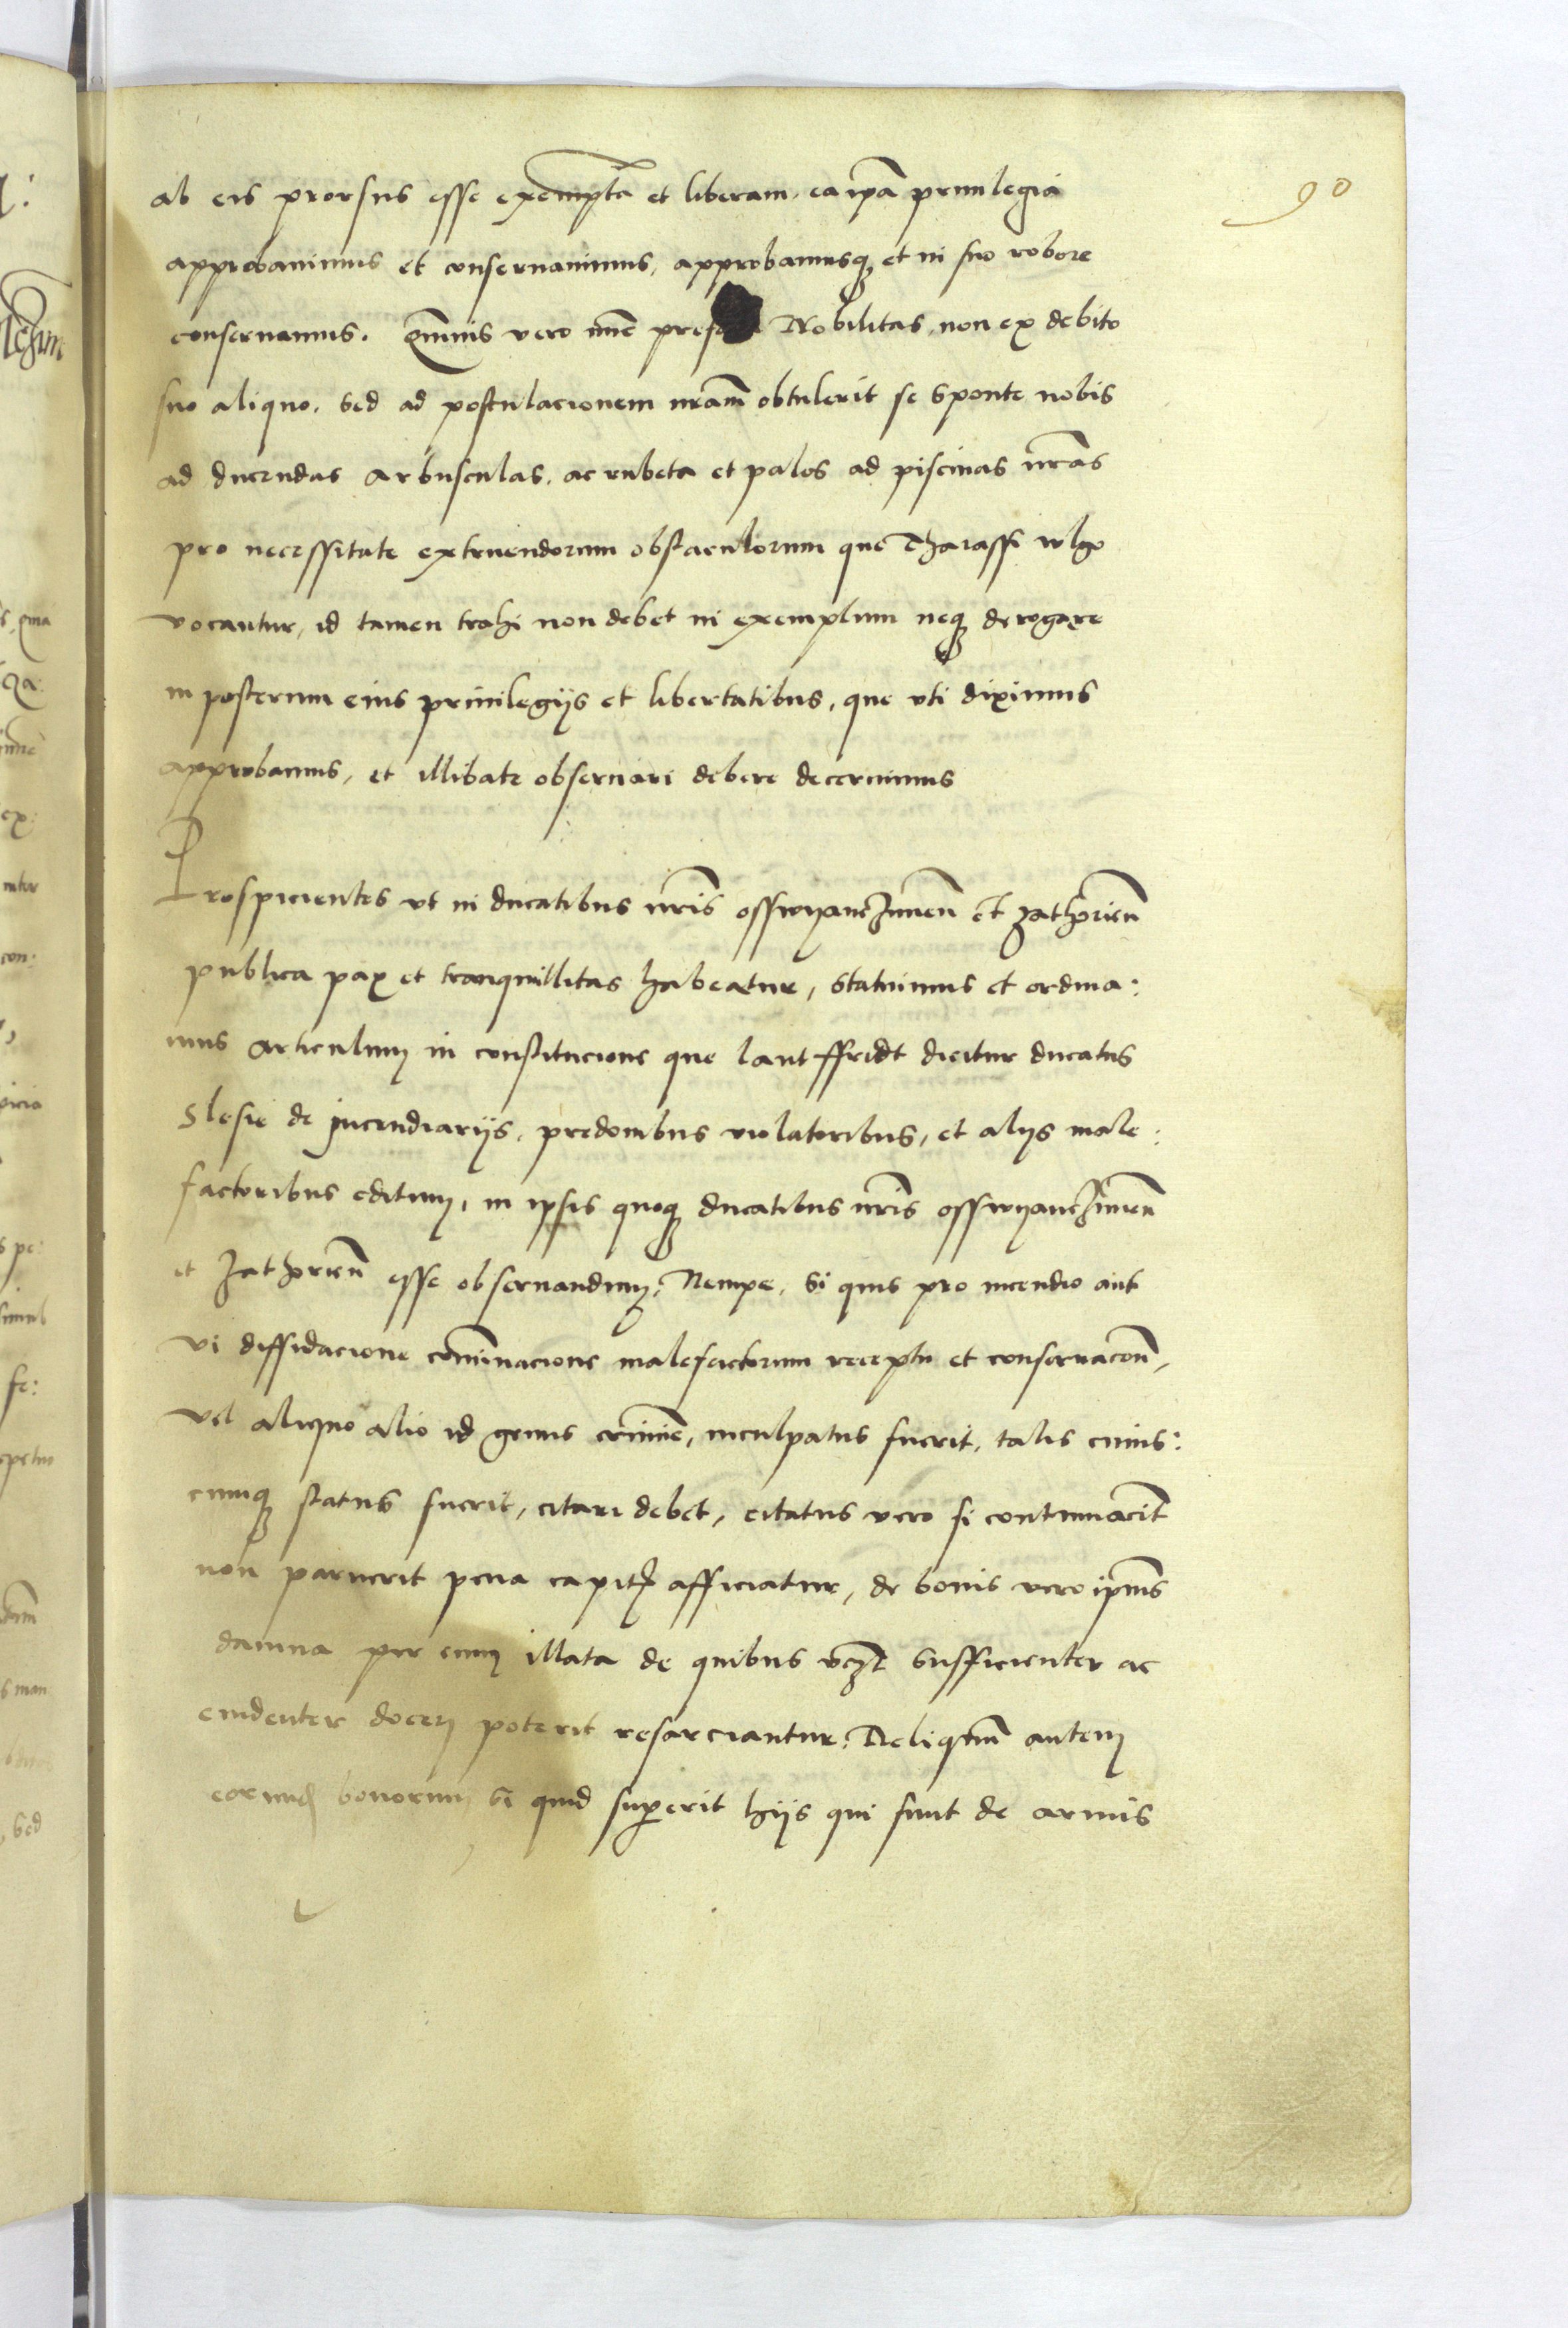 90
ab eis prorsus esse exemptā et liberam, ea ip̄a priuilegia
approbauimus et conseruauimus, approbamusq; et in suo robore
conseruamus. Qm̄uis vero nūc Nobilitas, non ex debito
suo aliquo, sed ad postulacionem nr̄am obtulerit se sponte nobis
ad ducendas arbusculas, ac rubeta et palos ad piscinas nr̄as
pro necessitate extruendorum obstaculorum que Tharassi wlgo
vocantur, id tamen trahi non debet in exemplum neq; derogare
in posterum eius priuilegijs et libertatibus, que vti diximus
approbamus, et illibate obseruari debere decernimus
Prospicientes vt in ducatibus nr̄is osswyanczimen̄ et zathorien̄
publica pax et tranquillitas habeatur, statuimus et ordina:
mus articulum in constitucione que lantffridt dicitur ducatus
Slesie de incendiarijs, predonibus violatoribus, et alijs male:
factoribus editum, in ipsis quoq; ducatibus nr̄is osswyanczimen̄
et zathorien̄ esse obseruandum, Nempe, si quis pro incendio aut
vi diffidacione com̄inacione malefactorum receptu et conseruacōn̄,
vel aliquo alio id genus crimīe, inculpatus fuerit, talis cuius:
cumq; status fuerit, citari debet, citatus vero si contumacit̄
non paruerit pena capitꝭ afficiatur, de bonis vero ip̄ius
damna per eum illata de quibus vcz̄t sufficienter ac
euidenter doceri poterit resarciantur. Reliquum̄ autem
eorumd̄ bonorum si quid sup̄erit hijs qui sunt de armis